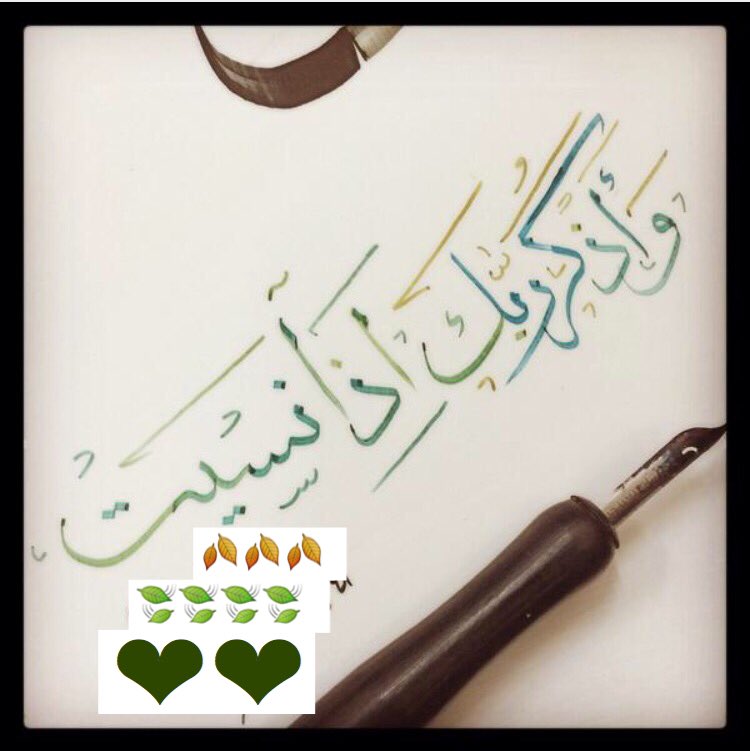 وَأذكر رَّبَّكَ إِذَا نَسِيتَ